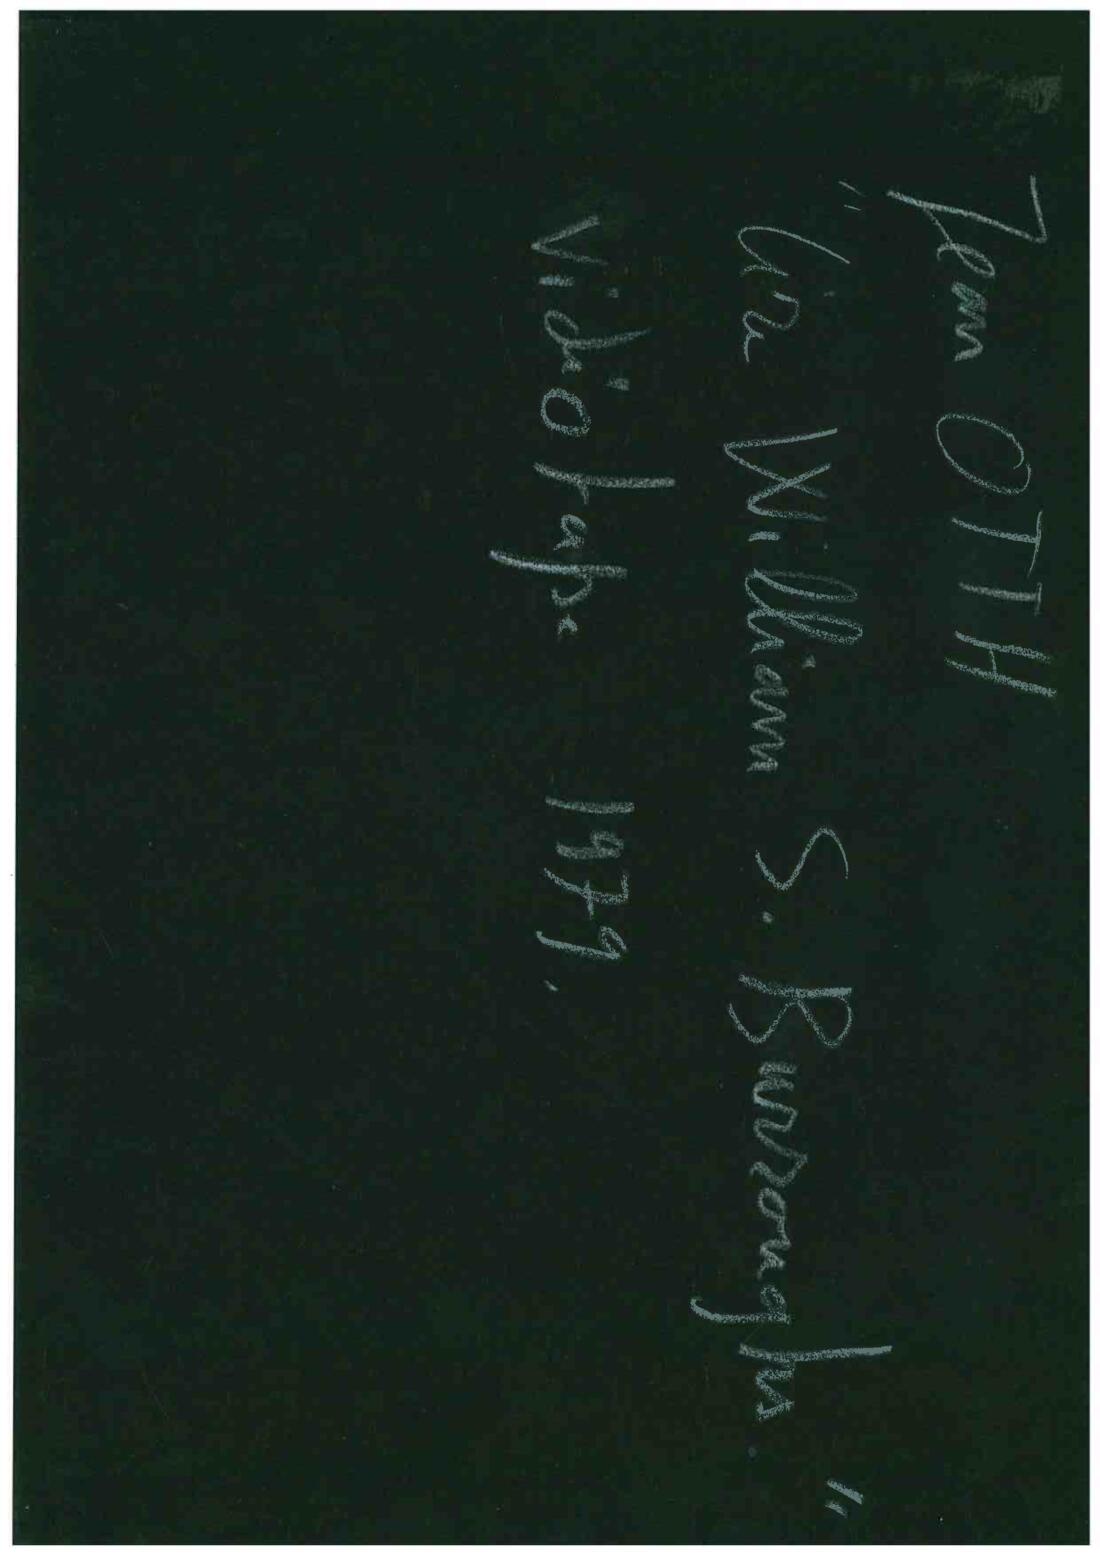 Jean OTTH
"Lire William S. Burroughs."
Vidéotape 1979.